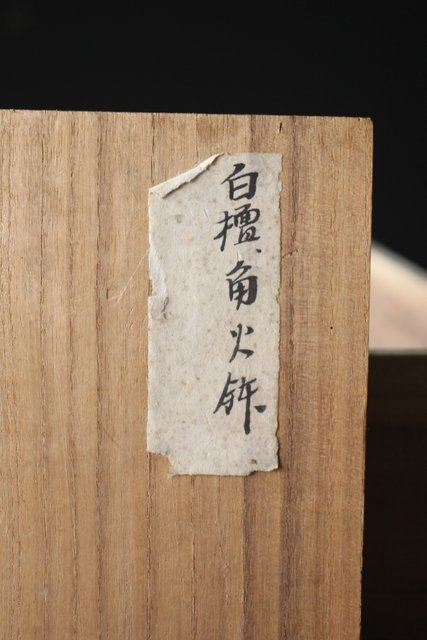 白檀角火鉢